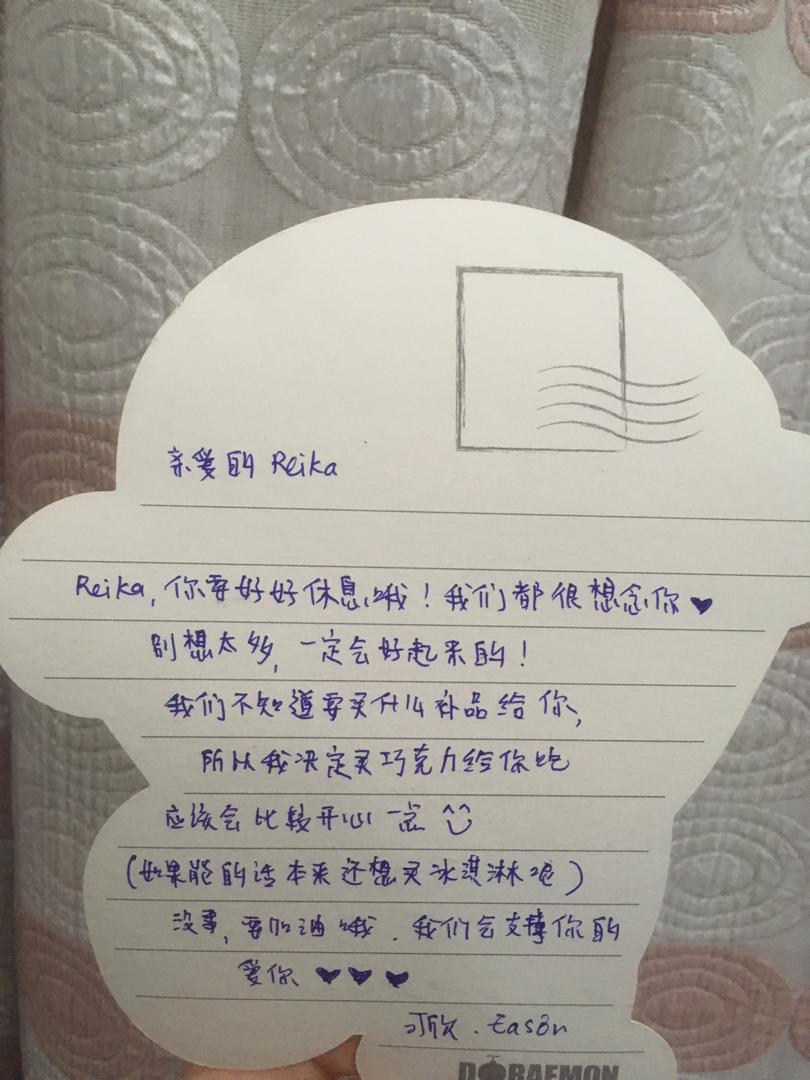 亲爱的 Reika
Reika, 你要好好休息哦！我们都很想念你♥
别想太多, 一定会好起来的！
我们不知道要买什么补品给你,
所以我决定买巧克力给你吃
应该会比较开心一点 ^^
(如果能的话本来还想买冰淇淋呢)
没事, 要加油哦. 我们会支撑你的
爱你 ♥♥♥
欣. Eason
DORAEMON